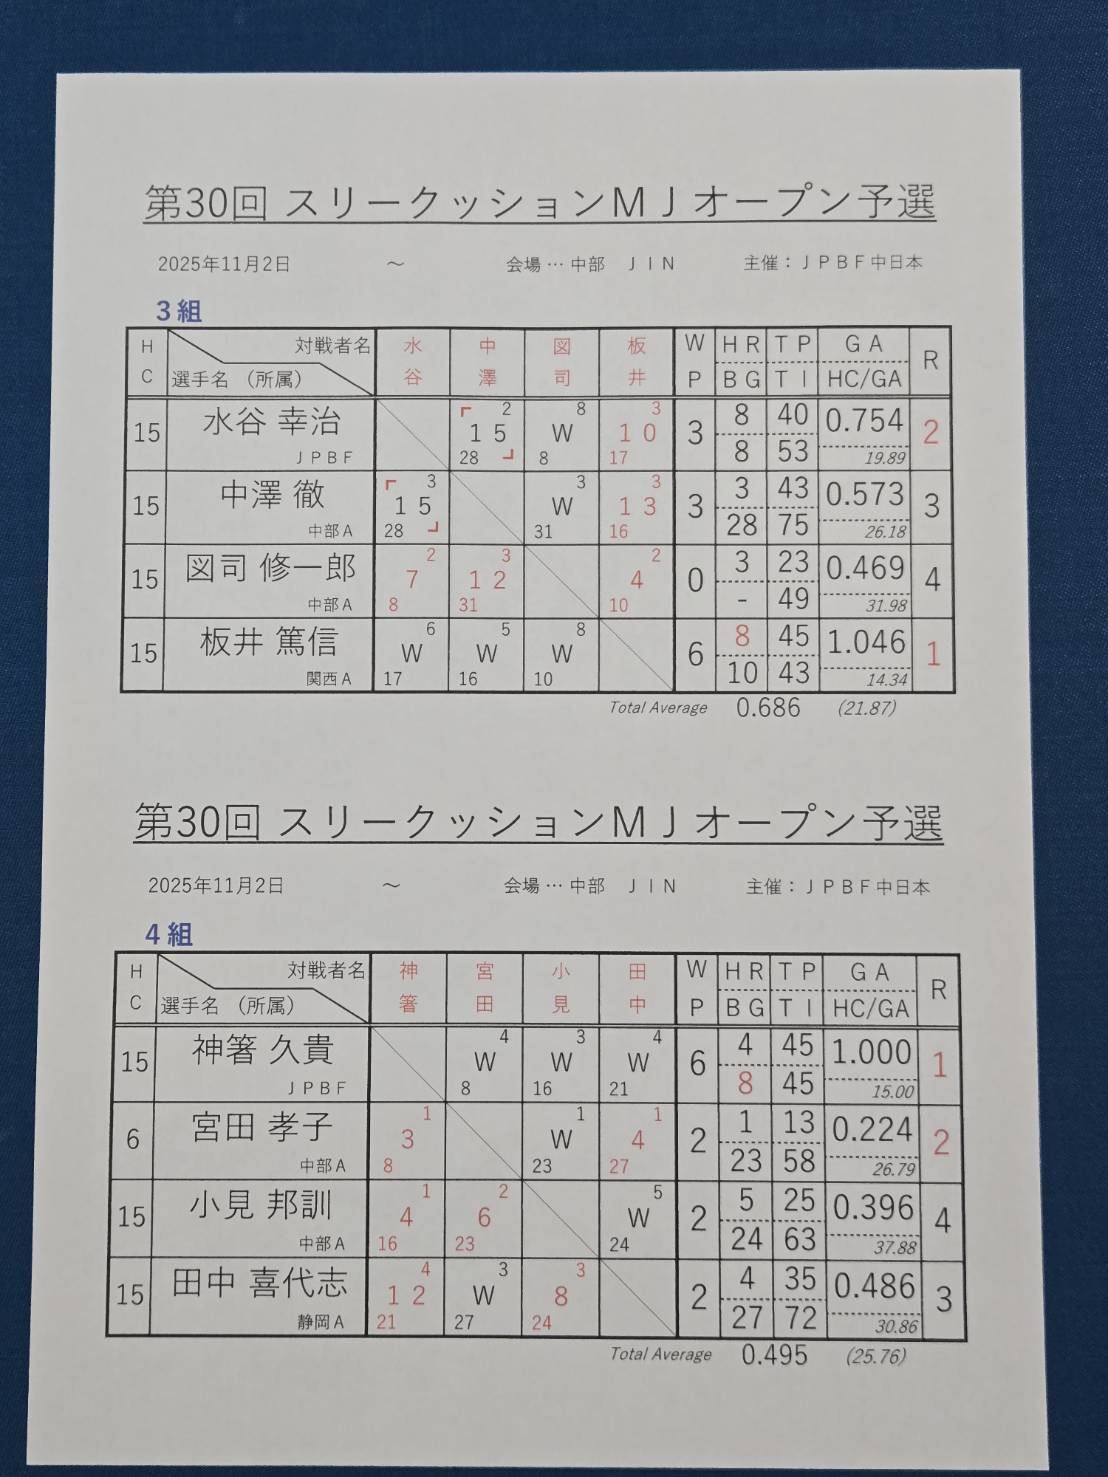 第30回 スリークッションＭＪオープン予選
2025年11月2日 ～ 会場 … 中部 ＪＩＮ 主催：ＪＰＢＦ中日本
３組
HC 対戦者名 選手名 （所属） 水谷 中澤 図司 板井 WP HR BG TP TI GA HC/GA R
15 水谷 幸治 ＪＰＢＦ 2 15 28 8 W 8 3 10 17 3 8 8 40 53 0.754 19.89 2
15 中澤 徹 中部Ａ 3 15 28 3 W 31 3 13 16 3 3 28 43 75 0.573 26.18 3
15 図司 修一郎 中部Ａ 2 7 8 3 12 31 2 4 10 0 3 - 23 49 0.469 31.98 4
15 板井 篤信 関西Ａ 6 W 17 5 W 16 8 W 10 6 8 10 45 43 1.046 14.34 1
Total Average 0.686 (21.87)
第30回 スリークッションＭＪオープン予選
2025年11月2日 ～ 会場 … 中部 ＪＩＮ 主催：ＪＰＢＦ中日本
４組
HC 対戦者名 選手名 （所属） 神箸 宮田 小見 田中 WP HR BG TP TI GA HC/GA R
15 神箸 久貴 ＪＰＢＦ 4 W 8 3 W 16 4 W 21 6 4 8 45 45 1.000 15.00 1
6 宮田 孝子 中部Ａ 1 3 8 1 W 23 1 4 27 2 1 23 13 58 0.224 26.79 2
15 小見 邦訓 中部Ａ 1 4 16 2 6 23 5 W 24 2 5 24 25 63 0.396 37.88 4
15 田中 喜代志 静岡Ａ 4 12 21 3 W 27 3 8 24 2 4 27 35 72 0.486 30.86 3
Total Average 0.495 (25.76)